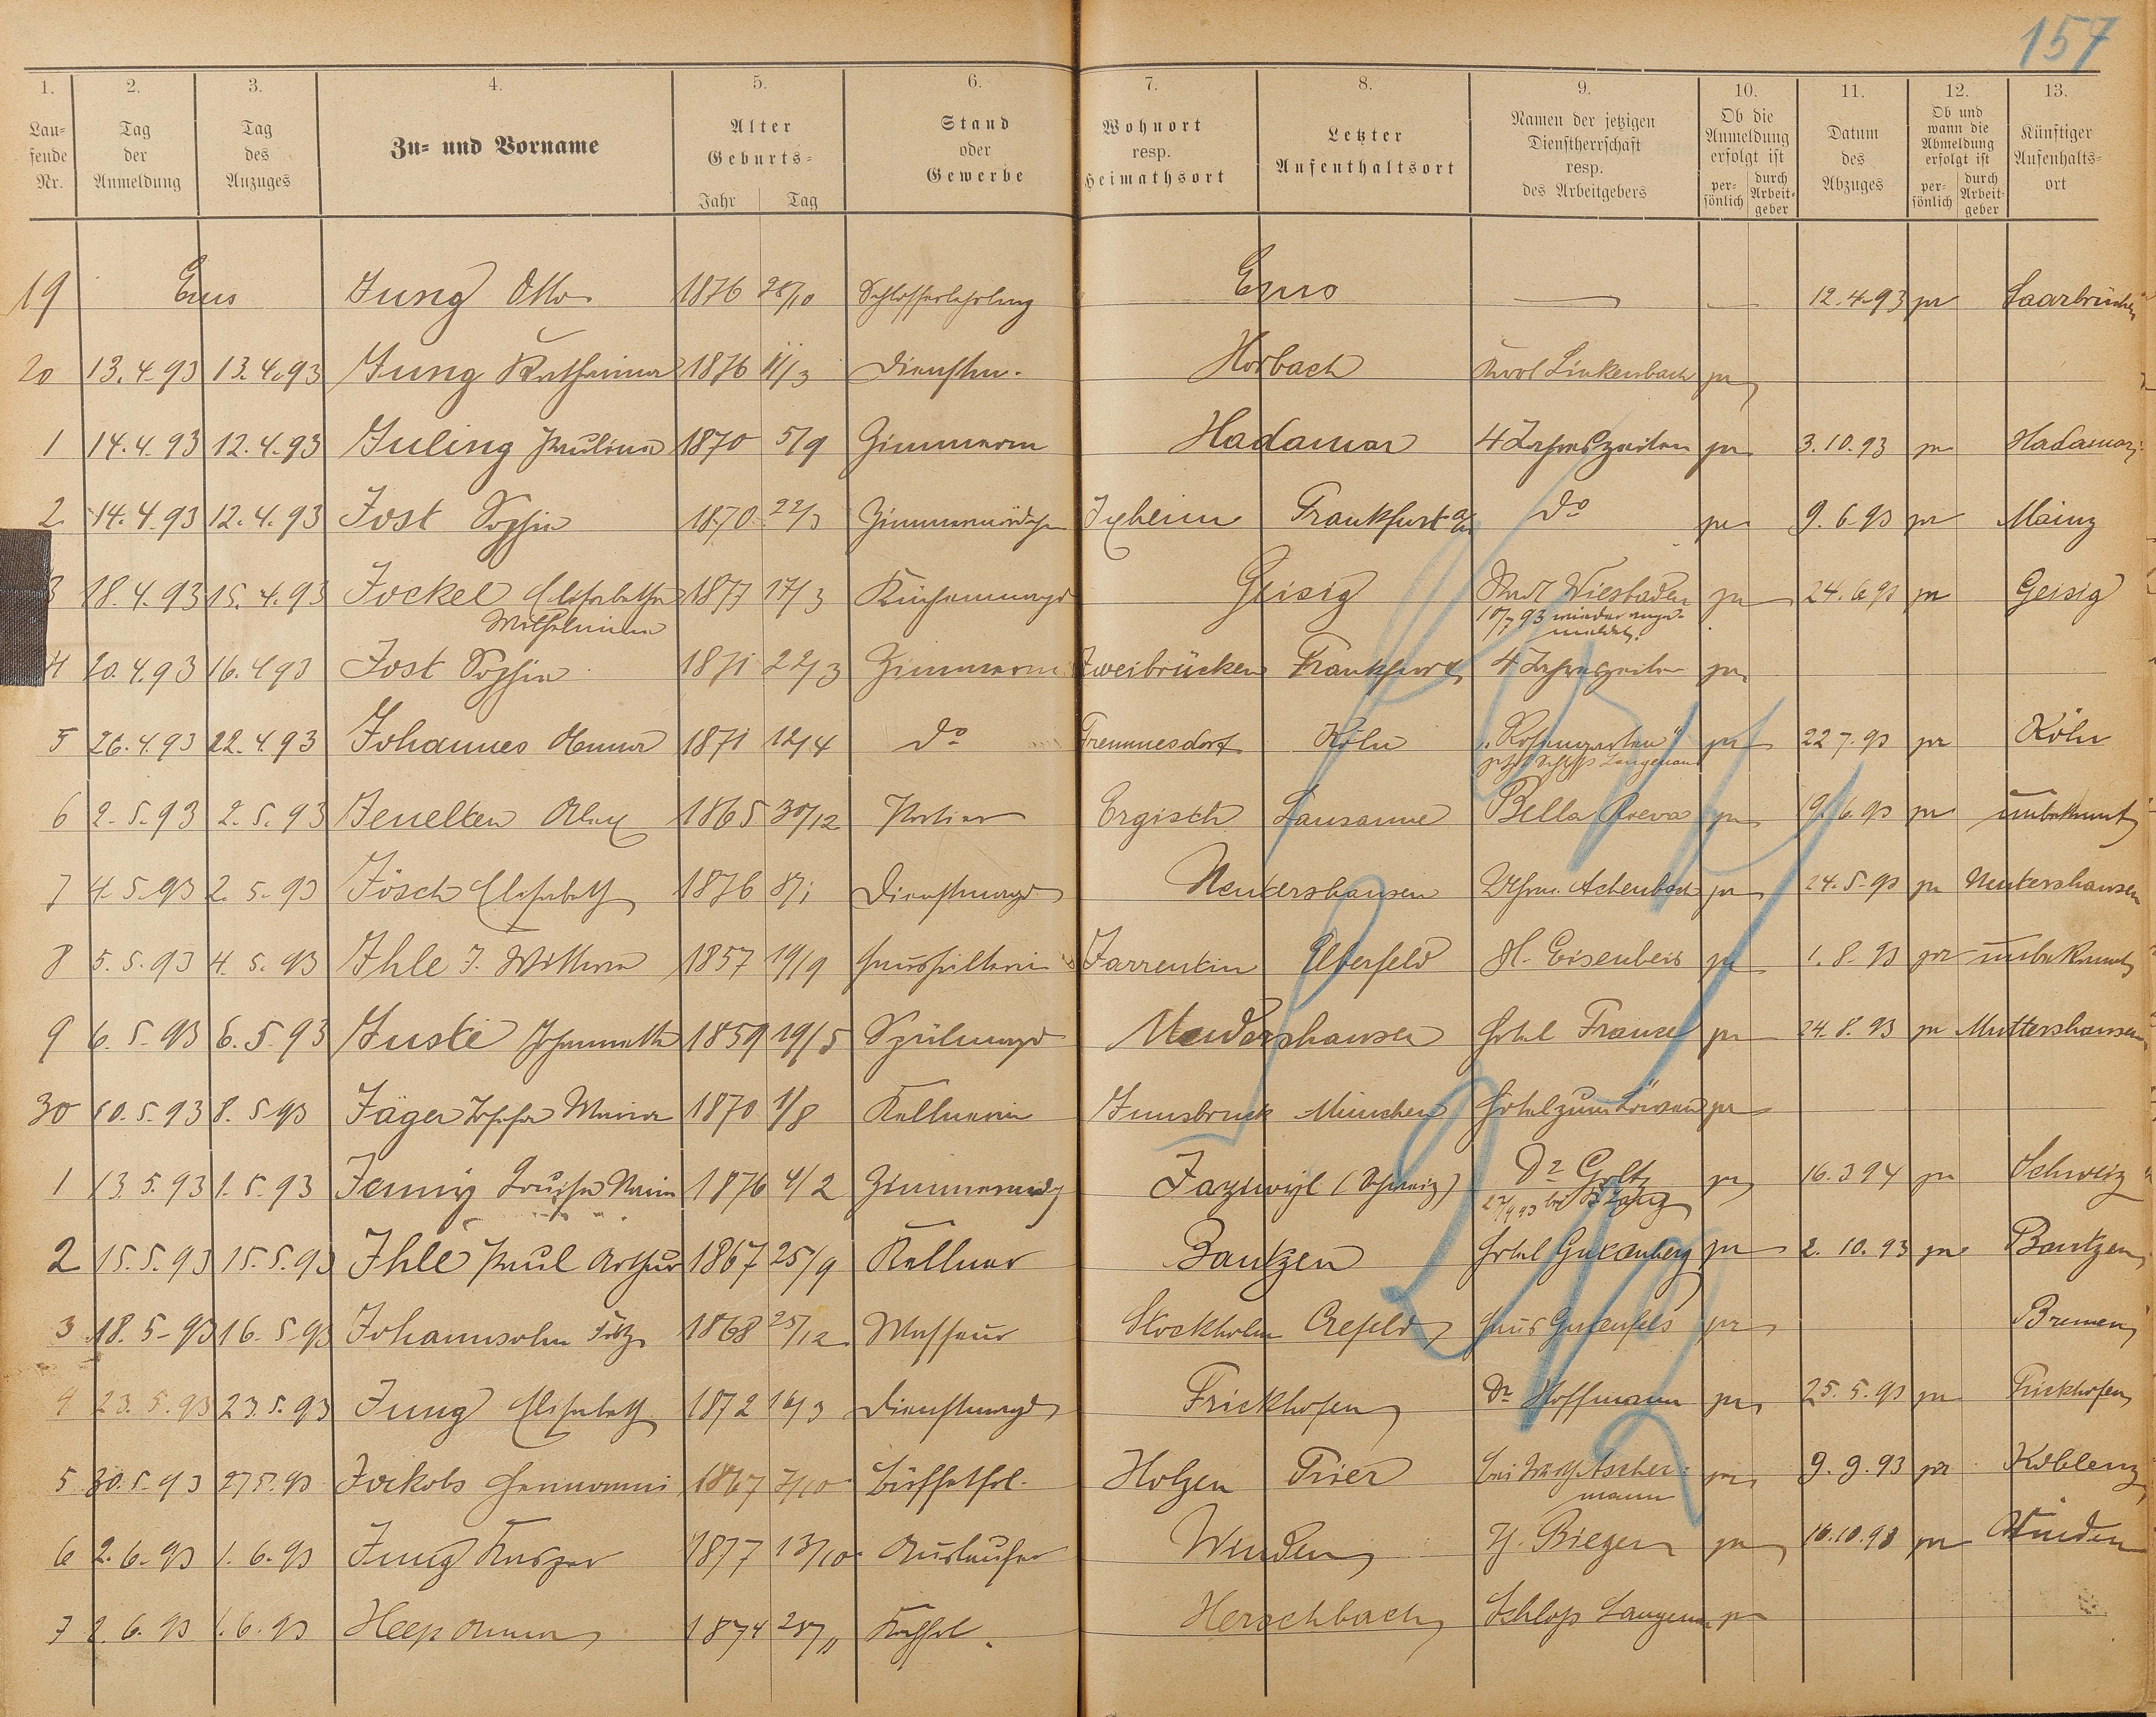 157
1. 2. 3. 4. 5. 6. 7. 8. 9. 10. 11. 12. 13.
Lau=
fende
Nr.
Tag
der
Anmeldung
Tag
des
Anzuges
Zu= und Vorname
Alter
Geburts=
Jahr Tag
Stand
oder
Gewerbe
Wohnort
resp.
Heimathsort
Letzter
Aufenthaltsort
Namen der jetzigen
Dienstherrschaft
resp.
des Arbeitgebers
Ob die
Anmeldung
erfolgt ist
per=
sönlich
durch
Arbeit=
geber
Datum
des
Abzuges
Ob und
wann die
Abmeldung
erfolgt ist
per=
sönlich
durch
Arbeit=
geber
Künftiger
Aufenhalts=
ort
19 Ems Jung Otto 1876 28/10 Schlosserlehrling Ems — — 12.4.93 pr Saarbrücken
20 13.4.93 13.4.93 Jung Katharina 1876 11/3 Dienstm. Horbach Karl Linkenbach pr
1 14.4.93 12.4.93 Juling Paulina 1870 5/9 Zimmerm Hadamar 4 Jahreszeiten pr 3.10.93 pr Hadamar
2. 14.4.93 12.4.93 Jost Sophie 1870 22/3 Zimmermädchen Ixheim Frankfurt a/M do pr 9.6.93 pr Mainz
3 18.4.93 15.4.93 Jockel Elisabetha 1877 17/3 Küchenmagd Geisig Stadt Wiesbaden pr 24.6.93 pr Geisig
Wilhelmine 10/7 93 wieder ange=
meldet.
4 20.4.93 16.4.93 Jost Sophie 1871 22/3 Zimmerm Zweibrücken Frankfurt 4 Jahreszeiten pr
5 26.4.93 22.4.93 Johannes Anna 1871 12/4 do Fremmesdorf Köln „Rosengarten“ pr 22.7.93 pr Köln
jetzt Schloss Langenau
6 2.5.93 2.5.93 Jenelten Alex 1865 30/12 Portier Ergisch Lausanne Bella Riva pr 19.6.93 pr unbekannt
7 4.5.93 2.5.93 Jösch Elisabeth 1876 8/1 Dienstmagd Nentershausen Achenbach pr 24.5.93 pr Nentershausen
8 5.5.93 4.5.93 Ihle J. Wittwe 1857 19/9 Haushälterin Zarrentin Elberfeld H. Eisenbeis pr 1.8.93 pr unbekannt
9 6.5.93 6.5.93 Juste Johannetta 1859 19/5 Spülmagd Hotel Franze pr 24.8.93 pr Muttershausen
30 10.5.93 8.5.93 Jäger Josefa Maria 1870 1/8 Kellnerin Innsbruck München Hotel zum Löwen pr
1 13.5.93 1.5.93 Jenny Louise Marie 1876 4/2 Zimmermdch (Schweiz) Dr Goltz pr 16.3.94 pr Schweiz
27/9 93 bei
2 15.5.93 15.5.93 Ihle Paul Arthur 1867 25/9 Kellner Bautzen Hotel Gutenberg pr 2.10.93 pr Bautzen
3 18.5.93 16.5.93 Johannsohn Fritz 1868 25/12 Masseur Stockholm Crefeld Haus Gutenfels pr Bremen
4 23.5.93 23.5.93 Jung Elisabeth 1872 16/3 Dienstmagd Frickhofen Dr Hoffmann pr 25.5.93 pr Frickhofen
5 30.5.93 27.5.93 Jackobs Hermann 1867 7/10 Holzen Trier Ascher= pr 9.9.93 pr Koblenz
mann
6 2.6.93 1.6.93 Jung Kaspar 1877 13/10 Auslaufer Winden H. Bieger pr 16.10.93 pr Winden
7 2.6.93 1.6.93 Heep Anna 1874 28/11 Herschbach Schloss Langenau pr